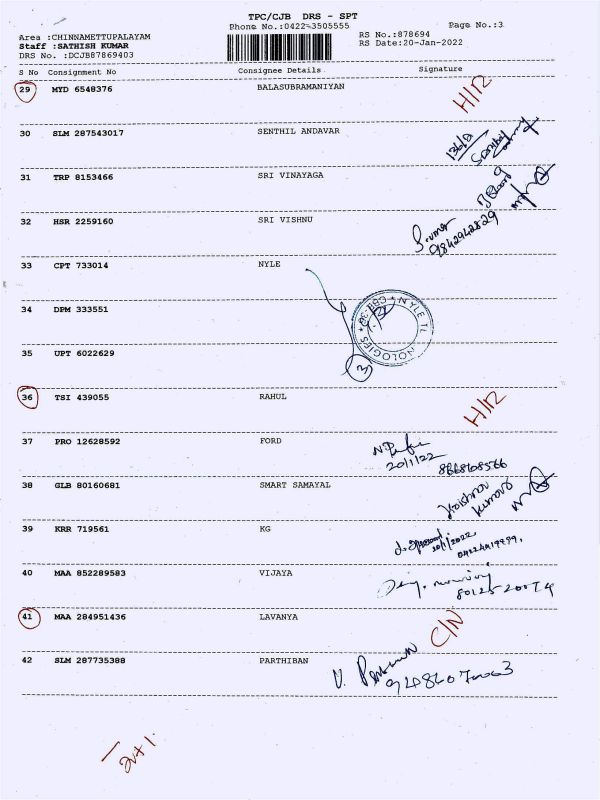 TPC/CJB DRS - SPT
Phone No.:0422-3505555 Page No.:3
Area :CHINNAMETTUPALAYAM RS No.:878694
Staff :SATHISH KUMAR RS Date:20-Jan-2022
DRS No. :DCJB87869403
S No Consignment No Consignee Details Signature
29 MYD 6548376 BALASUBRAMANIYAN H/R
30 SLM 287543017 SENTHIL ANDAVAR
31 TRP 8153466 SRI VINAYAGA
32 HSR 2259160 SRI VISHNU
9842942829
33 CPT 733014 NYLE
34 DPM 333551
NYLE TECHNOLOGIES
3
35 UPT 6022629
36 TSI 439055 RAHUL H/R
37 PRO 12628592 FORD
20/1/22 8668168566
38 GLB 80160681 SMART SAMAYAL
39 KRR 719561 KG
20/1/2022
40 MAA 852289583 VIJAYA
41 MAA 284951436 LAVANYA C/N
42 SLM 287735388 PARTHIBAN